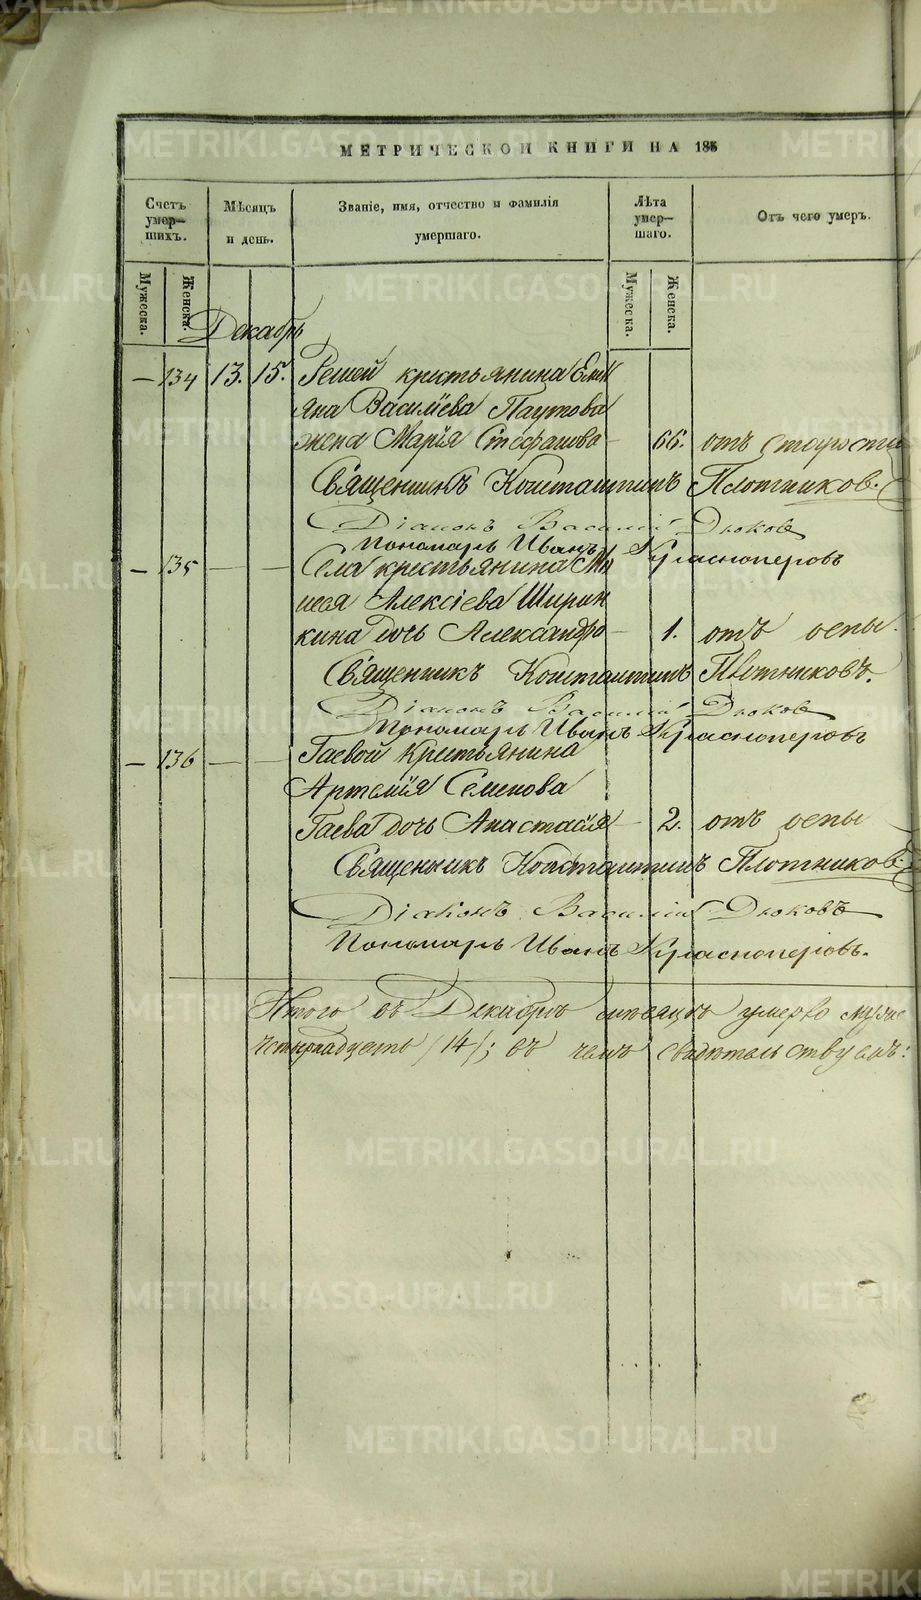 МЕТРИЧЕСКОЙ КНИГИ НА 185
Счетъ умер— шихъ.
Мѣсяцъ и день.
Званіе, имя, отчество и фамилія умершаго.
Лѣта умер— шаго.
Отъ чего умеръ.
Мужеска.
Женска.
Мужеска.
Женска.
Декабрь
— 134 13. 15. Решей крестьянина Емел
яна Василіева Паутова
жена Марія Стефанова — 66. отъ старости
Священникъ Константинъ Плотников.
Діаконъ Василій Дюков
Пономарь Иванъ Красноперовъ
— 135 — — Села крестьянина
Алексіева Ширин
кина дочь Александра — 1. отъ оспы.
Священникъ Константинъ Плотниковъ.
Діаконъ Василій Дюков
Пономарь Иванъ Красноперовъ
— 136 — — Гаевой крестьянина
Артемія Семенова
Гаева дочь Анастасія — 2. отъ оспы
Священникъ Константинъ Плотников.
Діаконъ Василій Дюковъ
Пономарь Иванъ Красноперовъ.
Итого въ Декабрѣ мѣсяцѣ умерло муже
четырнадцать /14/; въ чемъ свидѣтельствуемъ:
METRIKI.GASO-URAL.RU